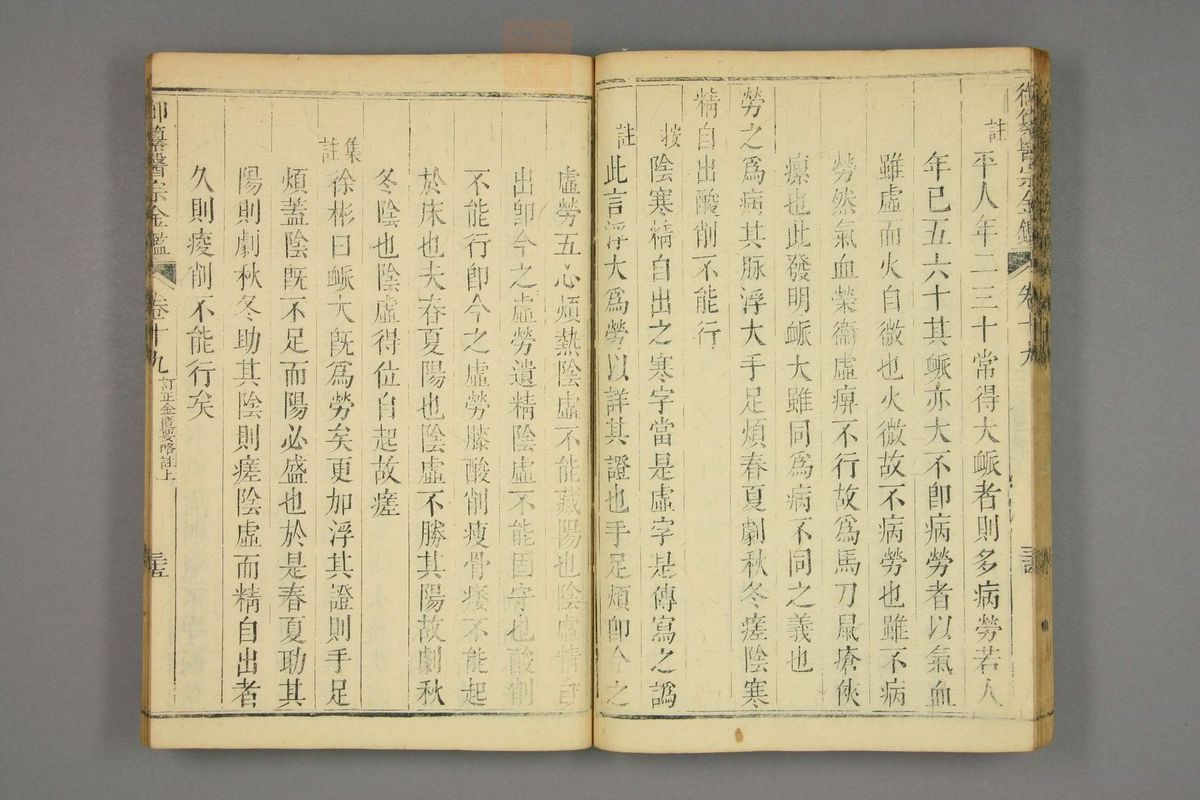 御纂醫宗金鑑 卷十九 三十四
註 平人年二三十常得大䘑者則多病勞若人
年已五六十其䘑亦大不卽病勞者以氣血
雖虛而火自微也火微故不病勞也雖不病
勞然氣血榮衞虛痹不行故爲馬刀鼠瘡俠
瘰也此發明䘑大雖同爲病不同之義也
勞之爲病其脉浮大手足煩春夏劇秋冬瘥陰寒
精自出酸削不能行
按 陰寒精自出之寒字當是虛字是傳寫之譌
註 此言浮大爲勞以詳其證也手足煩卽今之
虛勞五心煩熱陰虛不能藏陽也陰虛精自
出卽今之虛勞遺精陰虛不能固守也酸削
不能行卽今之虛勞膝酸削瘦骨痿不能起
於床也夫春夏陽也陰虛不勝其陽故劇秋
冬陰也陰虛得位自起故瘥
集註 徐彬曰䘑大旣爲勞矣更加浮其證則手足
煩蓋陰旣不足而陽必盛也於是春夏助其
陽則劇秋冬助其陰則瘥陰虛而精自出者
久則痠削不能行矣
御纂醫宗金鑑 卷十九 訂正金匱要略註上 三十五